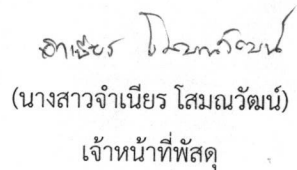 จำเนียร โสมณวัฒน์
(นางสาวจำเนียร โสมณวัฒน์)
เจ้าหน้าที่พัสดุ